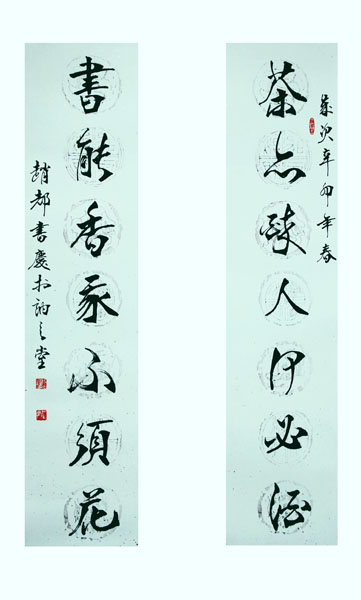 歲次辛卯年春
茶亦醉人何必酒
書能香我不須花
趙都書慶於之堂